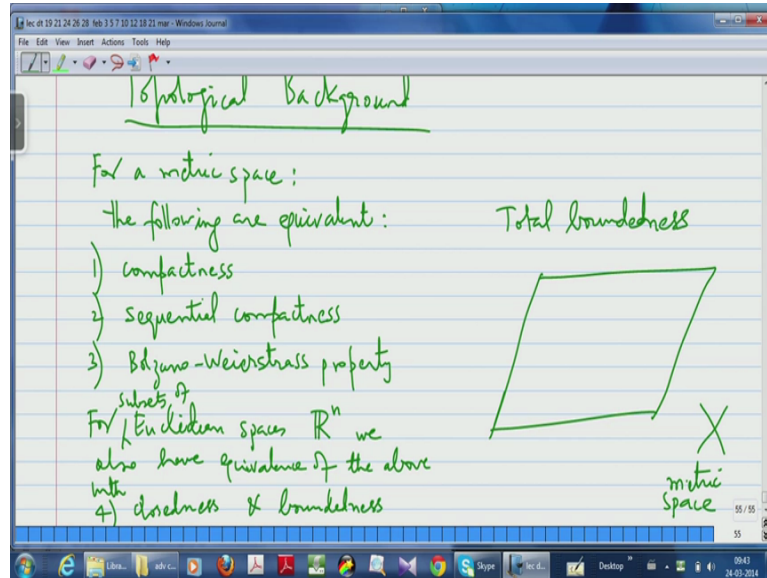 lec dt 19 21 24 26 28 feb 3 5 7 10 12 18 21 mar - Windows Journal
File Edit View Insert Actions Tools Help
Topological Background
For a metric space:
the following are equivalent:
1) compactness
2) sequential compactness
3) Bolzano-Weierstrass property
subsets of
For Euclidean spaces ℝⁿ we
also have equivalence of the above
with
4) closedness & boundedness
Total boundedness
X
metric
space
55 / 55
55
Libra...
adv c...
Skype
lec d...
Desktop
09:43
24-03-2014